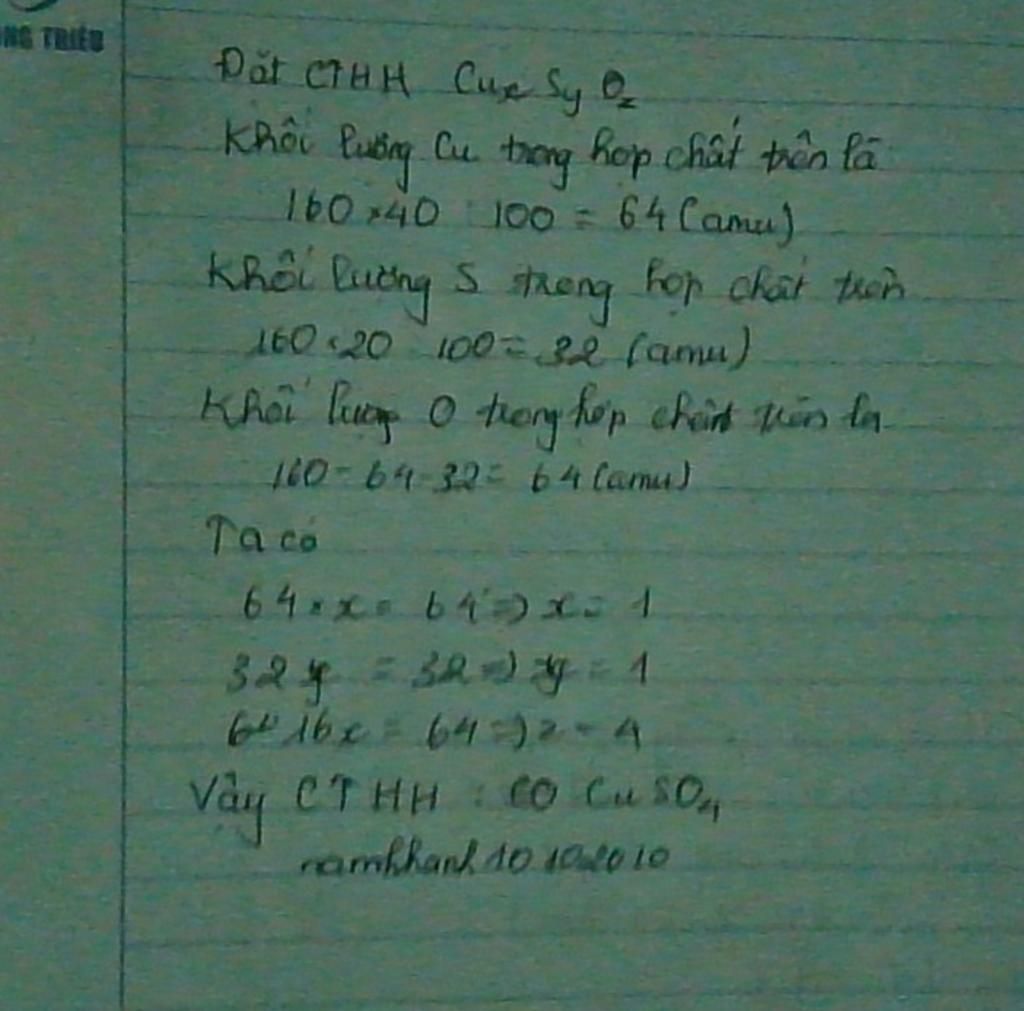 NG TRIỀU
Đặt CTHH CuxSyOz
Khối lượng Cu trong hợp chất trên là
160 × 40 : 100 = 64 (amu)
Khối lượng S trong hợp chất trên
160 × 20 100 = 32 (amu)
Khối lượng O trong hợp chất trên là
160 - 64 - 32 = 64 (amu)
Ta có
64 × x = 64 => x = 1
32 y = 32 => y = 1
16x = 64 => z = 4
Vậy CTHH : CuSO4
namkhanh10102010